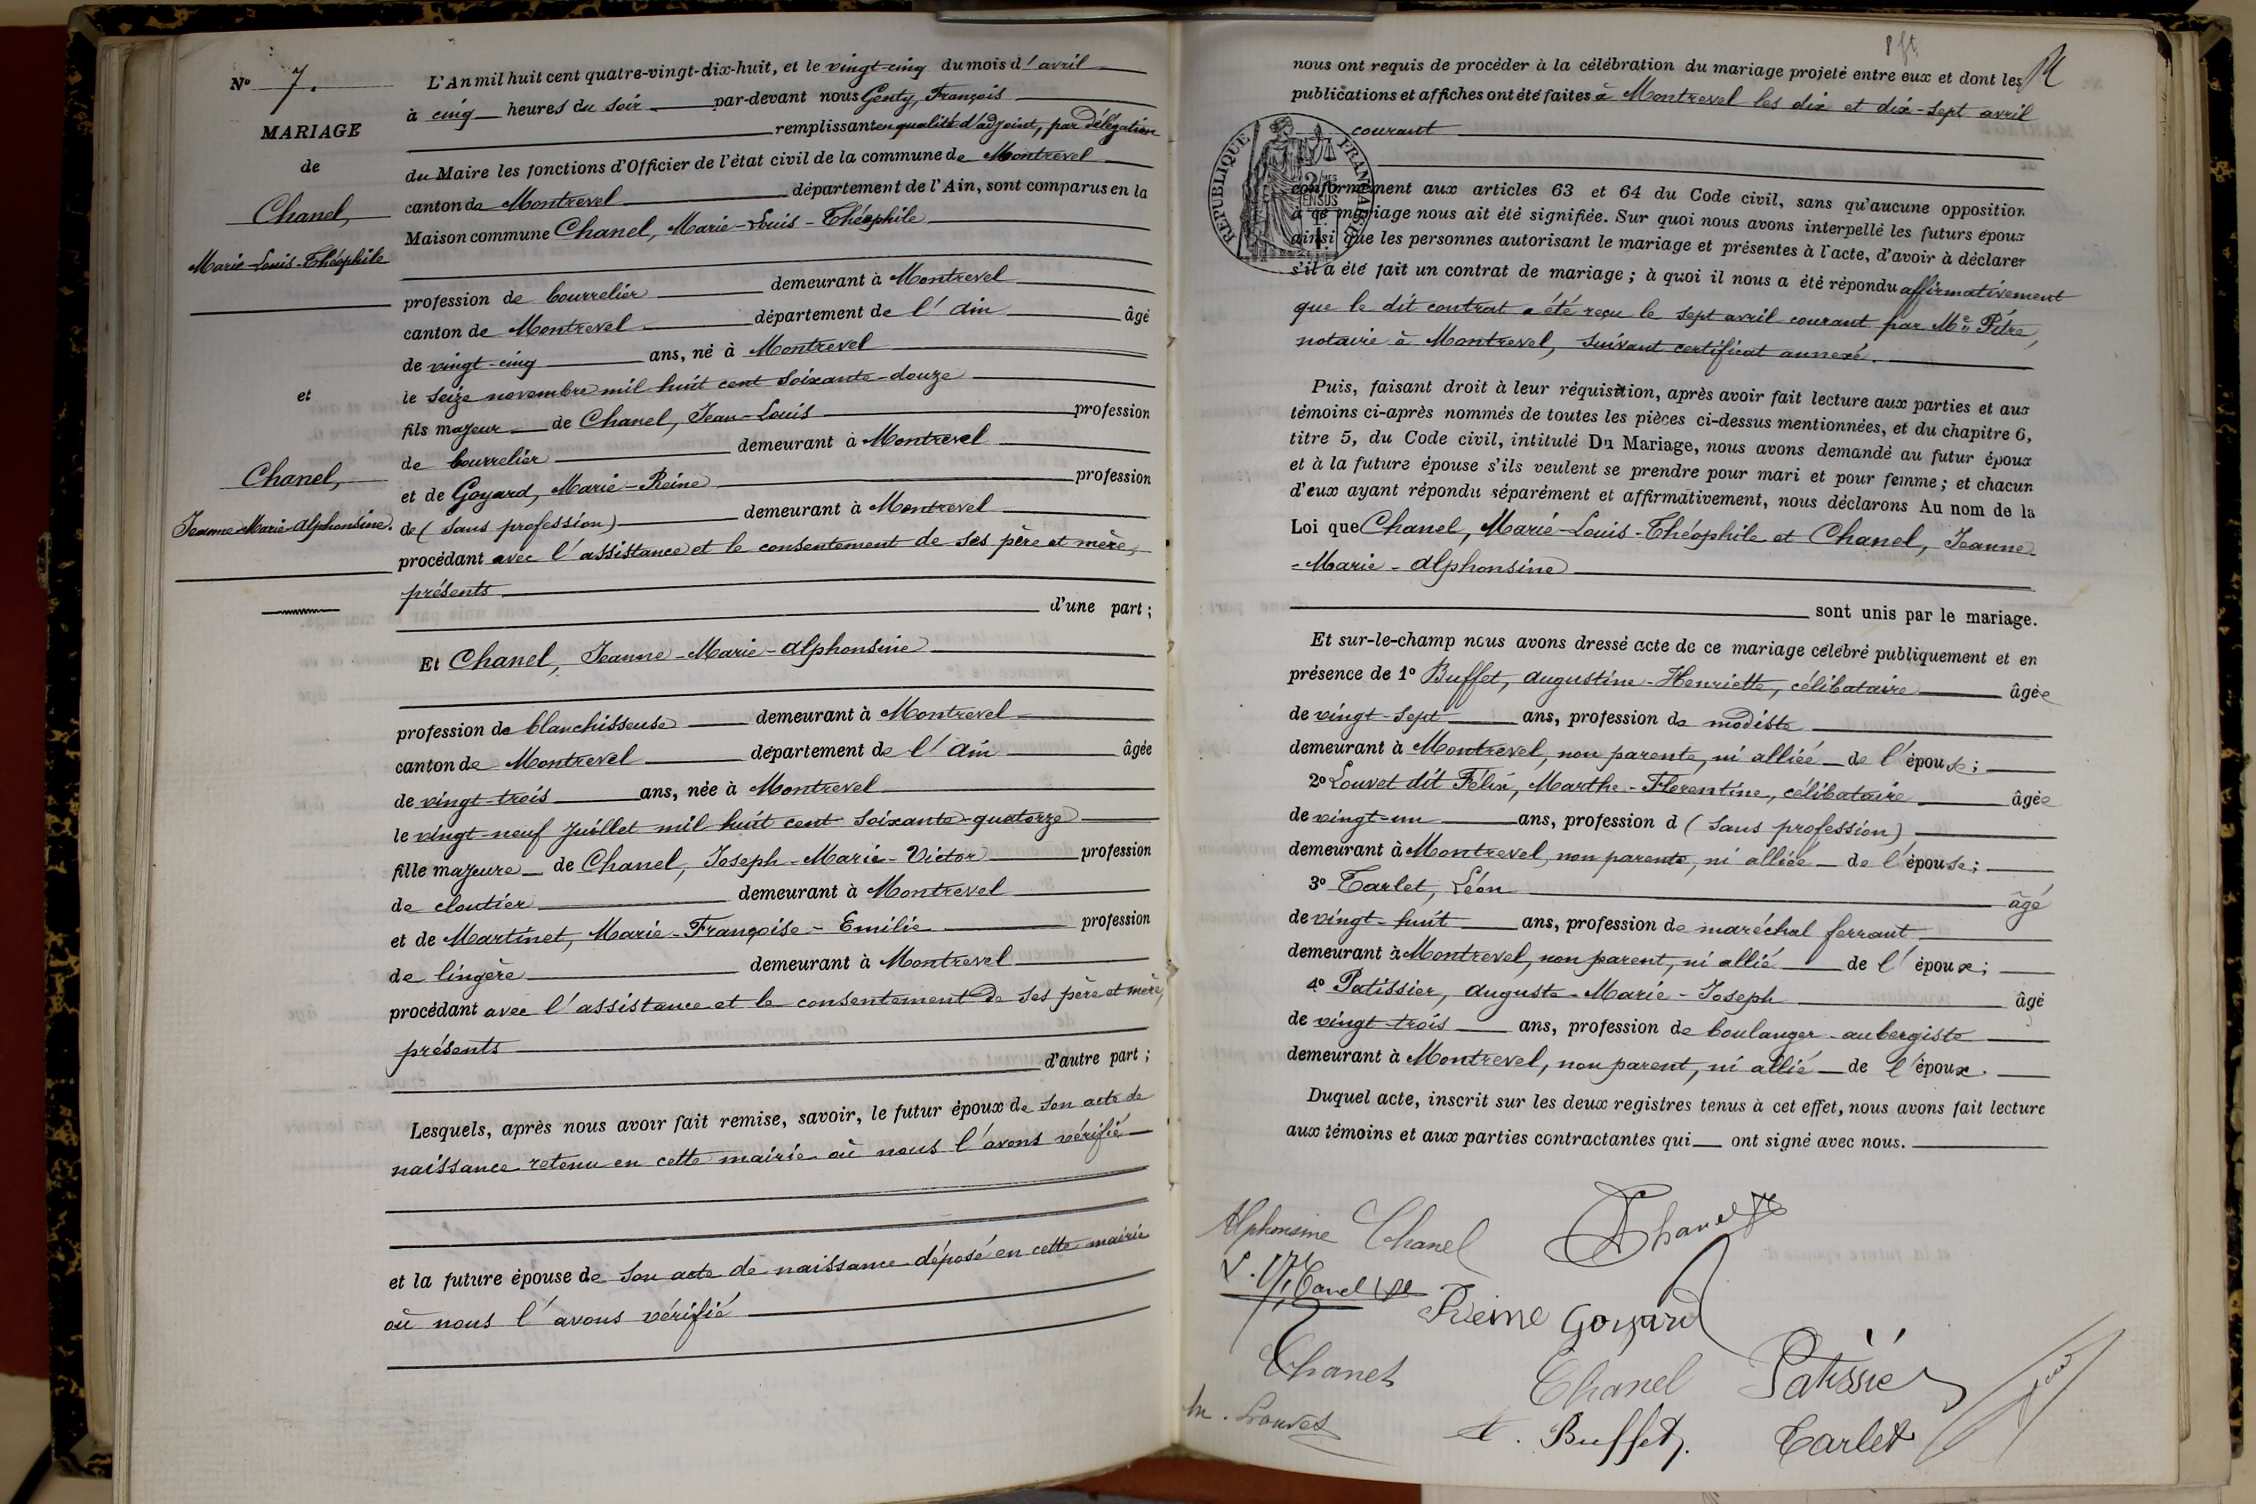 N° 7.
MARIAGE
de
Chanel,
Marie-Louis-Théophile
et
Chanel,
Jeanne-Marie-Alphonsine.
L'An mil huit cent quatre-vingt-dix-huit, et le vingt-cinq du mois d'avril
à cinq heures du soir par-devant nous Genty, François
remplissant en qualité d'adjoint, par délégation
du Maire les fonctions d'Officier de l'état civil de la commune de Montrevel
canton de Montrevel département de l'Ain, sont comparus en la
Maison commune Chanel, Marie-Louis-Théophile
profession de bourrelier demeurant à Montrevel
canton de Montrevel département de l'Ain âgé
de vingt-cinq ans, né à Montrevel
le seize novembre mil huit cent soixante-douze
fils majeur de Chanel, Jean-Louis profession
de bourrelier demeurant à Montrevel
et de Goyard, Marie-Reine profession
de (sans profession) demeurant à Montrevel
procédant avec l'assistance et le consentement de ses père et mère,
présents
d'une part ;
Et Chanel, Jeanne-Marie-Alphonsine
profession de blanchisseuse demeurant à Montrevel
canton de Montrevel département de l'Ain âgée
de vingt-trois ans, née à Montrevel
le vingt-neuf Juillet mil huit cent soixante-quatorze
fille majeure de Chanel, Joseph-Marie-Victor profession
de cloutier demeurant à Montrevel
et de Martinet, Marie-Françoise-Emilie profession
de lingère demeurant à Montrevel
procédant avec l'assistance et le consentement de ses père et mère,
présents
d'autre part ;
Lesquels, après nous avoir fait remise, savoir, le futur époux de son acte de
naissance retenu en cette mairie où nous l'avons vérifié
et la future épouse de son acte de naissance déposé en cette mairie
où nous l'avons vérifié
nous ont requis de procéder à la célébration du mariage projeté entre eux et dont les
publications et affiches ont été faites à Montrevel les dix et dix-sept avril
courant
RÉPUBLIQUE FRANÇAISE
conformément aux articles 63 et 64 du Code civil, sans qu'aucune opposition
à ce mariage nous ait été signifiée. Sur quoi nous avons interpellé les futurs époux
ainsi que les personnes autorisant le mariage et présentes à l'acte, d'avoir à déclarer
s'il a été fait un contrat de mariage ; à quoi il nous a été répondu affirmativement
que le dit contrat a été reçu le sept avril courant par Me Pitre,
notaire à Montrevel, suivant certificat annexé.
Puis, faisant droit à leur réquisition, après avoir fait lecture aux parties et aux
témoins ci-après nommés de toutes les pièces ci-dessus mentionnées, et du chapitre 6,
titre 5, du Code civil, intitulé Du Mariage, nous avons demandé au futur époux
et à la future épouse s'ils veulent se prendre pour mari et pour femme ; et chacun
d'eux ayant répondu séparément et affirmativement, nous déclarons Au nom de la
Loi que Chanel, Marie-Louis-Théophile et Chanel, Jeanne-
-Marie-Alphonsine
sont unis par le mariage.
Et sur-le-champ nous avons dressé acte de ce mariage célébré publiquement et en
présence de 1° Buffet, Augustine-Henriette, célibataire âgée
de vingt-sept ans, profession de modiste
demeurant à Montrevel, non parente, ni alliée de l'épouse ;
2° Louvet dit Félix, Marthe-Florentine, célibataire âgée
de vingt-un ans, profession d (sans profession)
demeurant à Montrevel, non parente, ni alliée de l'épouse ;
3° Carlet, Léon âgé
de vingt-huit ans, profession de maréchal ferrant
demeurant à Montrevel, non parent, ni allié de l'époux ;
4° Patissier, Auguste-Marie-Joseph âgé
de vingt-trois ans, profession de boulanger-aubergiste
demeurant à Montrevel, non parent, ni allié de l'époux.
Duquel acte, inscrit sur les deux registres tenus à cet effet, nous avons fait lecture
aux témoins et aux parties contractantes qui ont signé avec nous.
Alphonsine Chanel
Reine Goyard
Chanel
Chanel Patissier
M. Louvet
A. Buffet.
Carlet